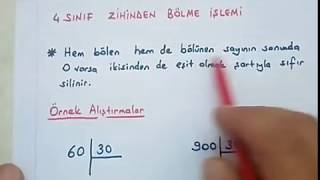 4 SINIF ZİHİNDEN BÖLME İŞLEMİ
* Hem bölen hem de bölünen sayının sonunda
0 varsa ikisinden de eşit olmak şartıyla sıfır
silinir.
Örnek Alıştırmalar
60 30 900 3